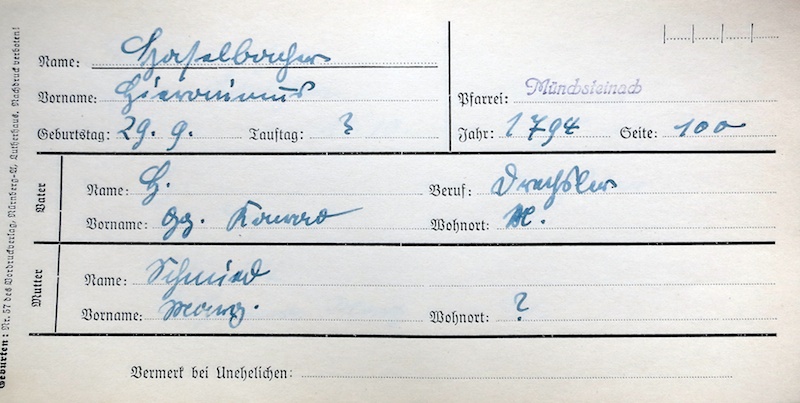 Name: Haselbacher
Vorname: Hieronimus
Pfarrei: Münchsteinach
Geburtstag: 29. 9. Tauftag: ?
Jahr: 1794 Seite: 100
Vater
Name: H. Beruf: Drechsler
Vorname: Gg. Konrad Wohnort: M.
Mutter
Name: Schmied
Vorname: Marg. Wohnort: ?
Vermerk bei Unehelichen:
Geburten: Nr. 57 des Vordruckverlag, Nürnberg-A, Lutherhaus. Nachdruck verboten!